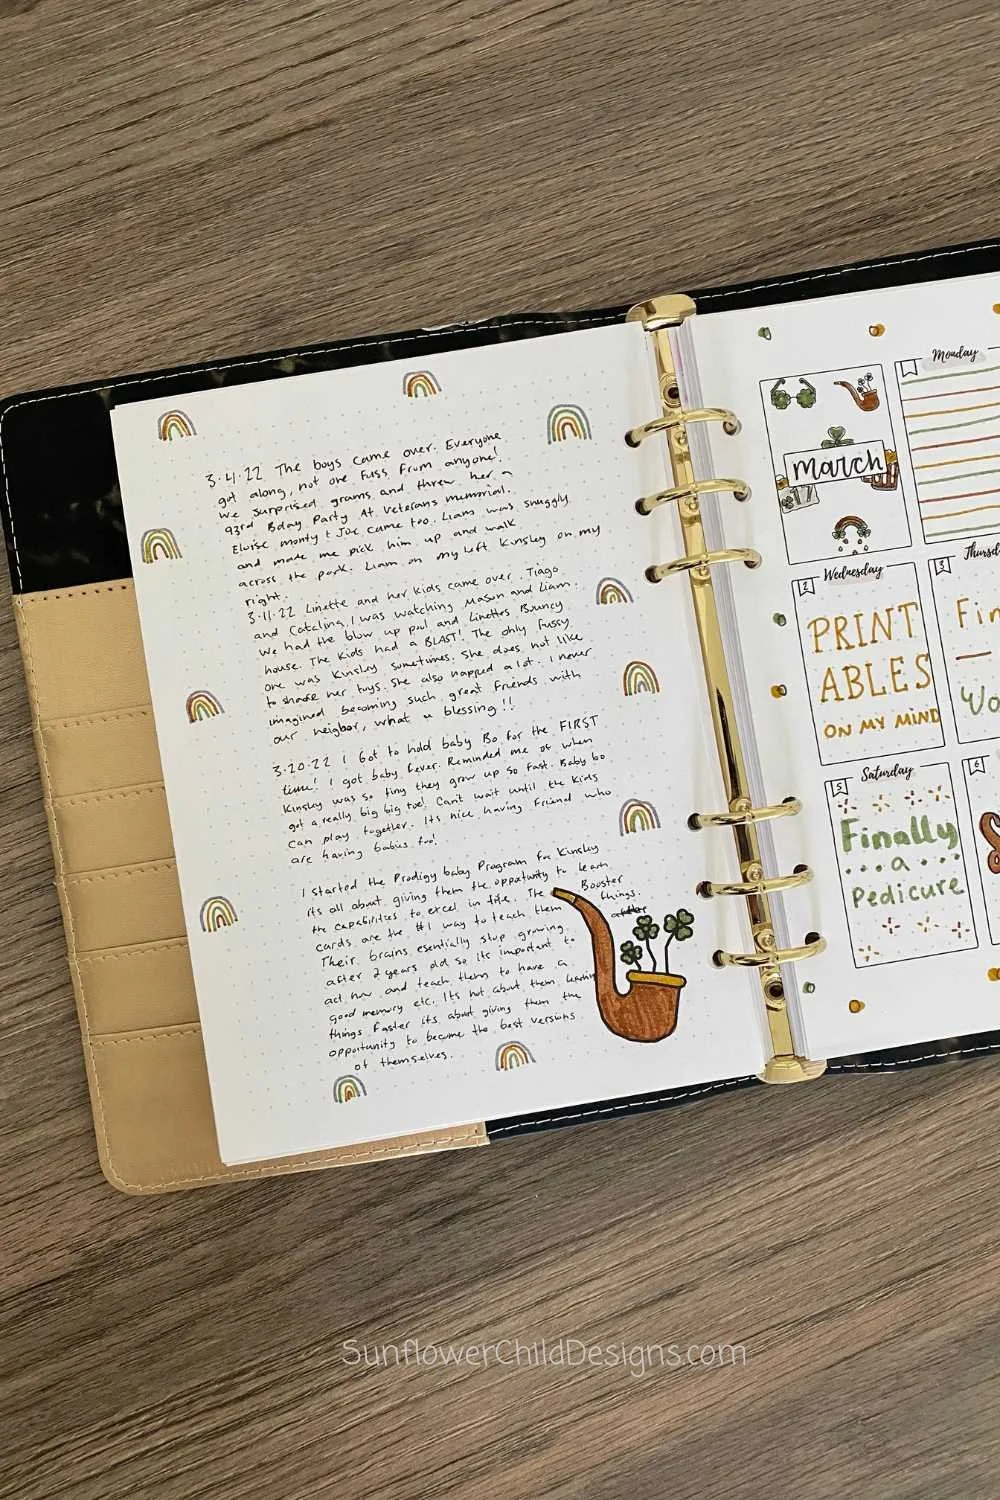 3.4.22 The boys came over. Everyone
got along, not one fuss from anyone!
We surprised grams and threw her a
93rd Bday Party At Veterans memorial.
Eloise monty + Joe came too. Liam was snuggly
and made me pick him up and walk
across the park. Liam on my left Kinsley on my
right.
3.11.22 Linette and her kids came over. Tiago
and Catalina, I was watching Mason and Liam.
We had the blow up pool and Linettes Bouncy
house. The kids had a BLAST! The only fussy
one was Kinsley sometimes. She does not like
to share her toys. She also napped a lot. I never
imagined becoming such great friends with
our neigbor, what a blessing!!
3.20.22 I Got to hold baby Bo for the FIRST
time! I got baby fever. Reminded me of when
Kinsley was so tiny they grow up so fast. Baby bo
got a really big big toe! Cant wait until the kids
can play together. Its nice having friend who
are having babies too!
I started the Prodigy baby Program for Kinsley
its all about giving them the oppotunity to learn
the capabilities to excel in life. The Booster
cards are the #1 way to teach them things.
Their brains esentially stop growing
after 2 years old so its important to
act now and teach them to have a
good memory etc. Its not about them learning
things faster its about giving them the
opportunity to become the best versions
of themselves.
march
17
Monday
2
Wednesday
PRINT
ABLES
ON MY MIND
3
Thursd
Fin
Wo
5
Saturday
Finally
a
Pedicure
6
S
SunflowerChildDesigns.com